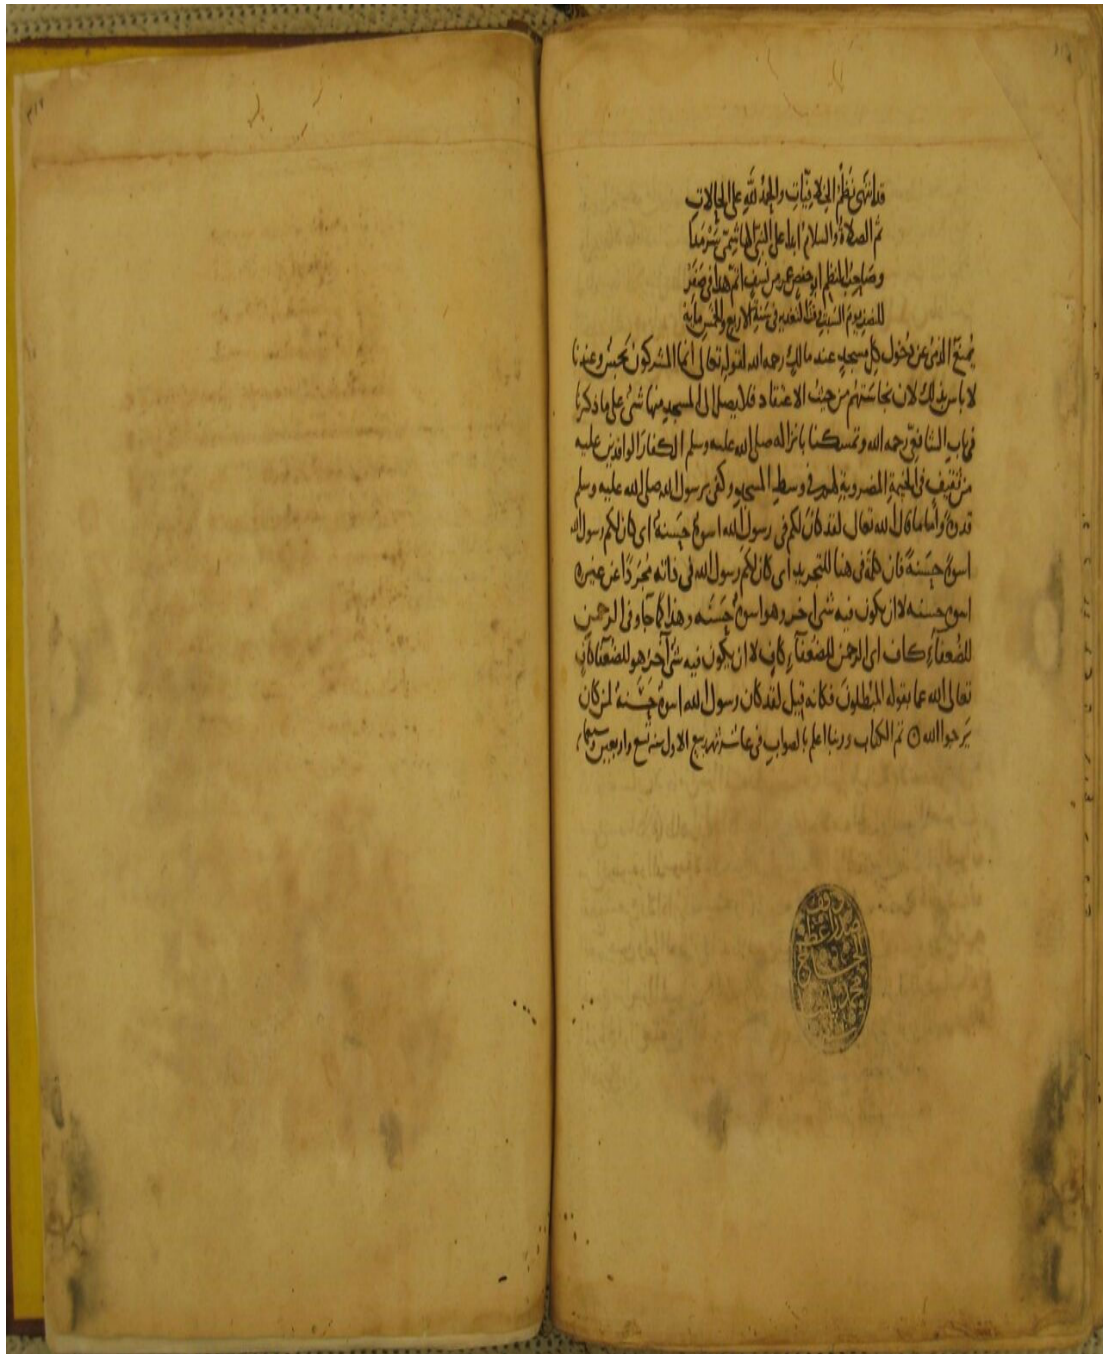 قد انتهى نظم الخلافيات والحمد لله على الحالات
ثم الصلاة والسلام ابدا على النبي الهاشمي سرمدا
وصاحب النظم ابو حفص عمر من نسف اتم هذا في صفر
للنصف يوم السبت في سنة الاربع والخمس مايه
يمنع الذمي عن دخول كل مسجد عند مالك رحمه الله لقوله تعالى انما المشركون نجس وعندنا
لا باس بذلك لان نجاستهم من حيث الاعتقاد فلا يصل الى المسجد منها شى على ما ذكرنا
في باب الشافعي رحمه الله وتمسكنا بانزاله صلى الله عليه وسلم الكفار الوافدين عليه
من ثقيف في الخيمة المضروبة لهم في وسط المسجد وكفى برسول الله صلى الله عليه وسلم
قدوة واما ما قال الله تعالى لقد كان لكم في رسول الله اسوة حسنة اى كان لكم رسول الله
اسوة حسنة فان كلمة في هنا للتجريد اى كان لكم رسول الله في ذاته مجردا عن غيره
اسوة حسنه لا ان يكون فيه شى اخر وهو اسوة حسنه وهذا كما جاء وفى الرحمن
للضعفاء كاف اى الرحمن للضعفاء كاف لا ان يكون فيه شى آخر هو للضعفا كاف
تعالى الله عما يقوله المبطلون فكانه قيل لقد كان رسول الله اسوة حسنة لمن كان
يرجوا الله تم الكتاب وربنا اعلم بالصواب في عاشر شهر ربيع الاول سنة تسع واربعين وسبعمايه